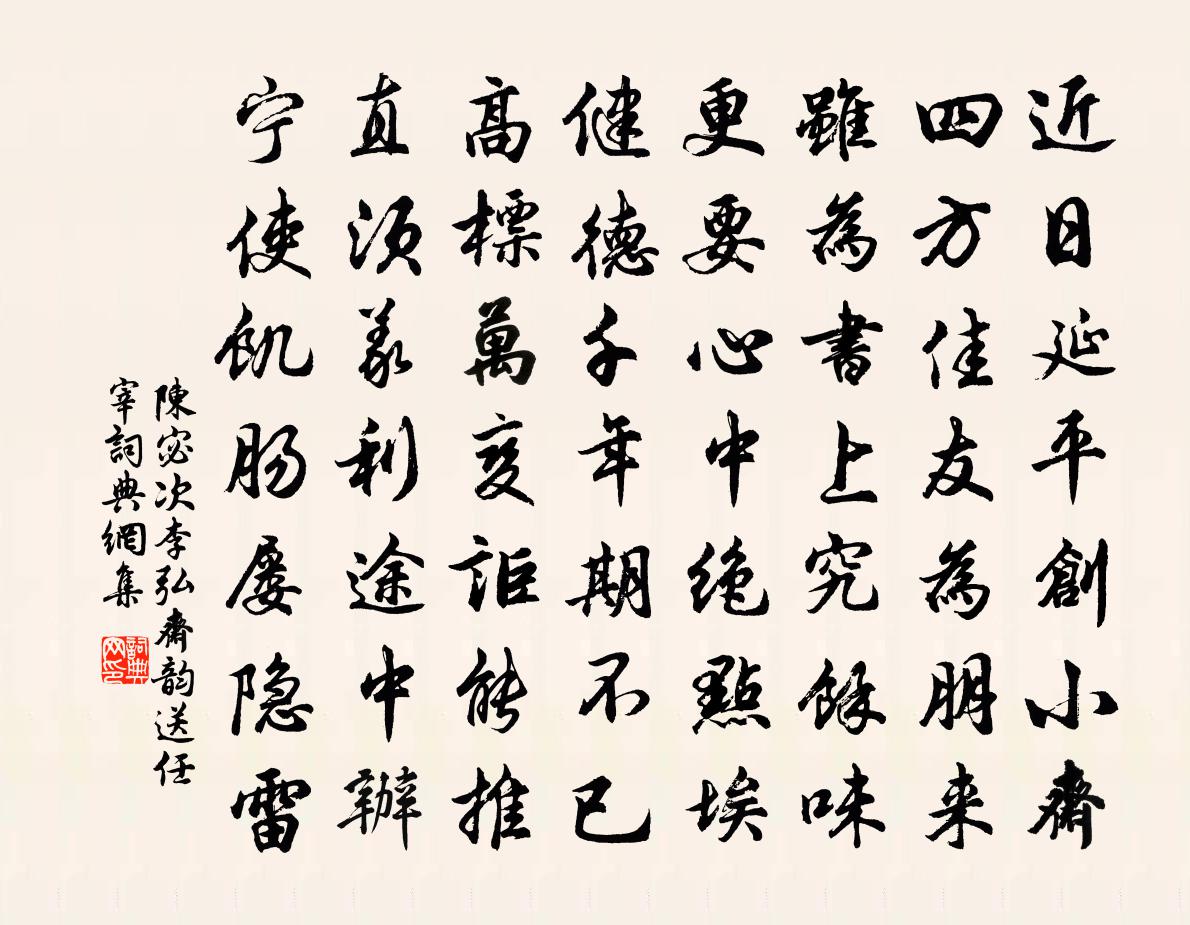 近日延平創小齋
四方佳友為朋来
雖為書上究餘味
更要心中绝點埃
健德千年期不已
高標萬变詎能推
直须義利途中辦
宁使飢肠屡隐雷
陳宓次李弘齋韵送任
宰詞典網集
詞典
网印